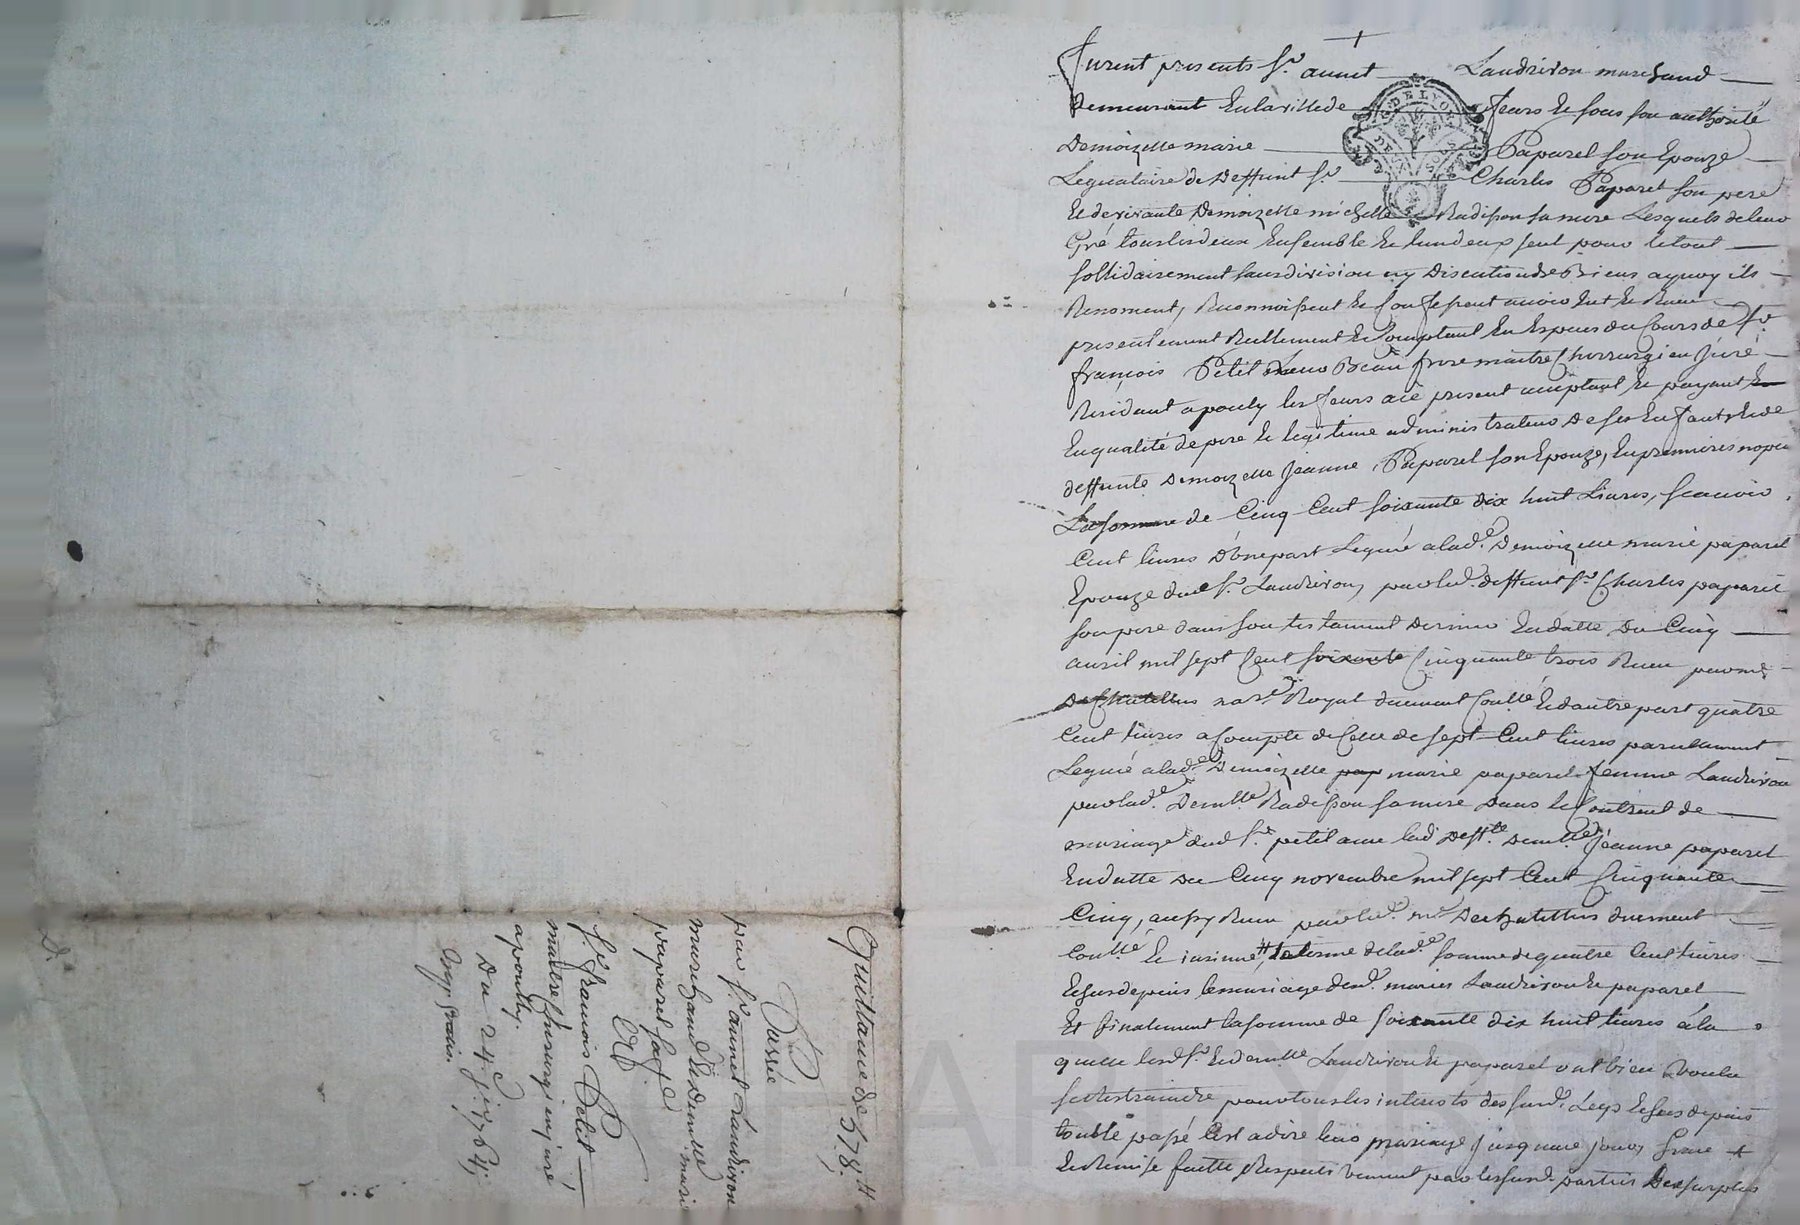 furent presents Sr. annet Laudrivon marchand
demeurant en la ville de feurs et sous son authorité
demoizelle marie Paparel son Epouze
Leguataire de deffunt Sr. Charles Paparel son pere
et de vivante demoizelle michelle Radisson sa mere Lesquels de leur
Gré tous les deux Ensemble et lun deux seul pour le tout
sollidairement sans division ny discution de Biens aquoy ils
Renoncent, Reconnoissent et Confessent avoir Eut et Receu
presentement Reellement et Comptant En Especes du Cours de Sr.
francois Petit leur Beau frere maitre Chirurgien juré
Residant a pouly les feurs aie present acceptant et payant
En qualité de pere et legitime administrateur de ses Enfants et de
deffunte demoizelle jeanne Paparel son Epouze, En premieres nopces
La somme de Cinq Cent soixante dix huit Livres, scavoir
Cent livres d'une part Leguée a lad.e demoizelle marie paparel
Epouze dud Sr. Laudrivon, par led. deffunt Sr. Charles paparel
son pere dans son testament dernier En datte du Cinq
avril mil sept Cent soixante Cinquante trois Receu par me
de Chatellus nore Royal duement Conllé Et dautre part quatre
Cent livres a Compte de Celle de sept Cent livres pareillement
Leguée a lad.e Demoizelle pap marie paparel femme Laudrivon
par lad.e demlle Radisson sa mere dans le Contract de
mariage dud Sr. petit avec lad deffte. demlle jeanne paparel
En datte du Cinq novembre mil sept Cent Cinquante
Cinq, aussy Receu par led. me Dechatellus duement
Conllé Et insinué, le terme de lad.e somme de quatre Cent livres
Echus depuis le mariage desd. mariés Laudrivon et paparel
Et finalement la somme de soixante dix huit livres a la
quelle lesd Sr. et demlle Laudrivon et paparel ont bien voulu
se Restraindre pour tous les interets des susd. Legs Echus depuis
tout le passé Cest a dire leur mariage jusquace jour, Grace
et Remise faitte Respectivement par les susd. parties du surplus
Quittance de 578 #
Passée
par Sr. annet Laudrivon
marchand Et demlle marie
paparel sa fe
A
Sr. francois Petit
maitre Chirurgien juré
apouilly.
Du 24e
Exp. gratis.
DE LYON
DEUX SOLS